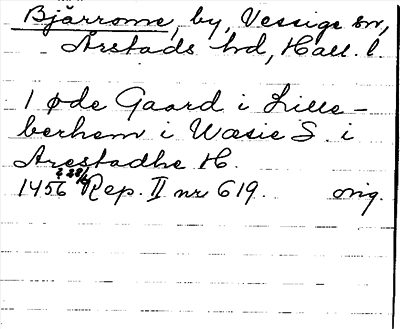 Bjärrome, by, Vessige sn,
Årstads hd, Hall. l.
1 øde Gaard i Lille-
berhem i Wæsie S. i
Arestadhe H.
1456 28/2 Rep. II nr 619. orig.